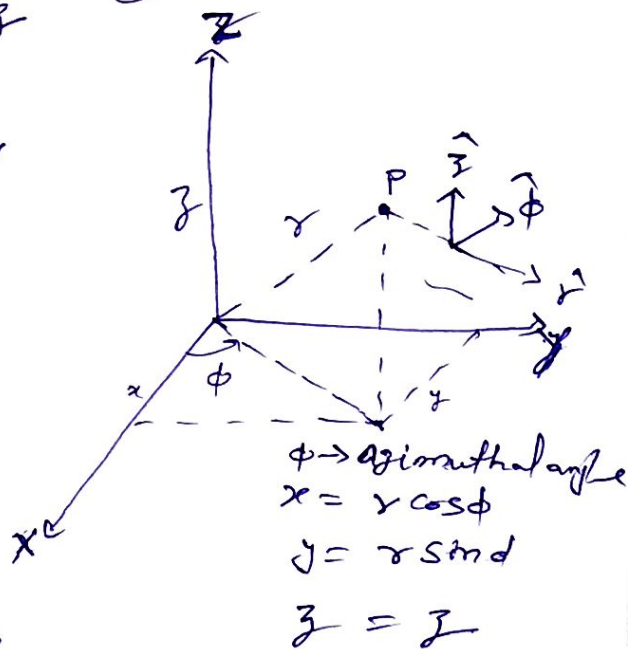 Z
z
r
P
ẑ
ϕ̂
r̂
y
x
ϕ
y
X
ϕ → azimuthal angle
x = r cosϕ
y = r sind
z = z